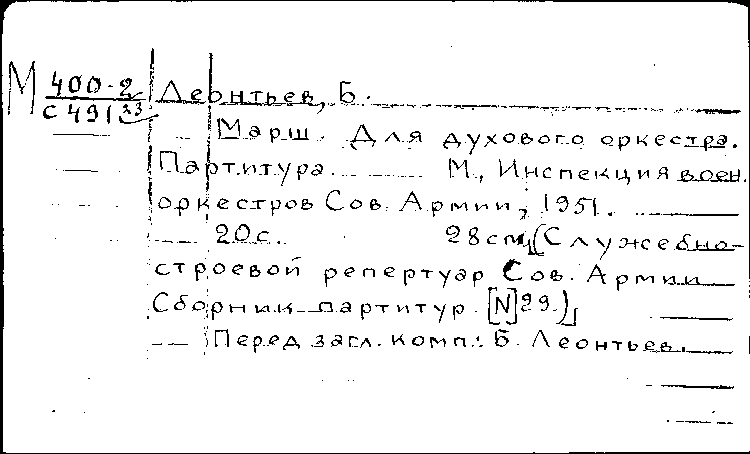 М 400-2 Леонтьев, Б.
С 491 33
Марш. Для духового оркестра.
Партитура. М., Инспекция воен.
оркестров Сов. Армии, 1951.
20с. 28см (Служебно-
строевой репертуар Сов. Армии
Сборник партитур. [N]29.)
Перед загл. комп.: Б. Леонтьев.